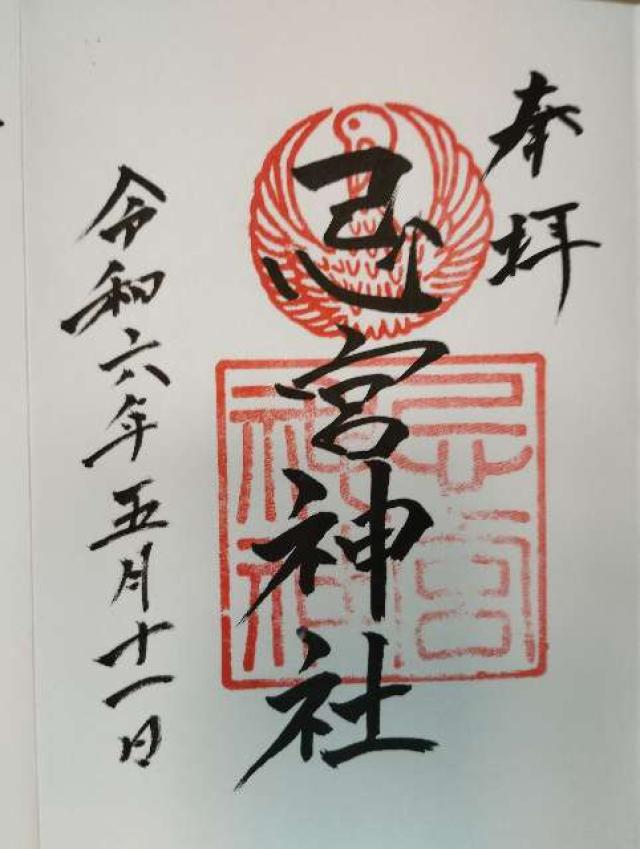 奉拝
忌宮神社
忌宮神社
令和六年五月十一日